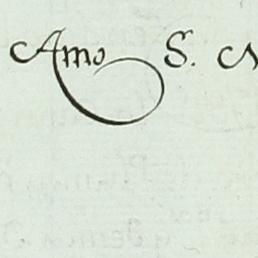 Amo S.